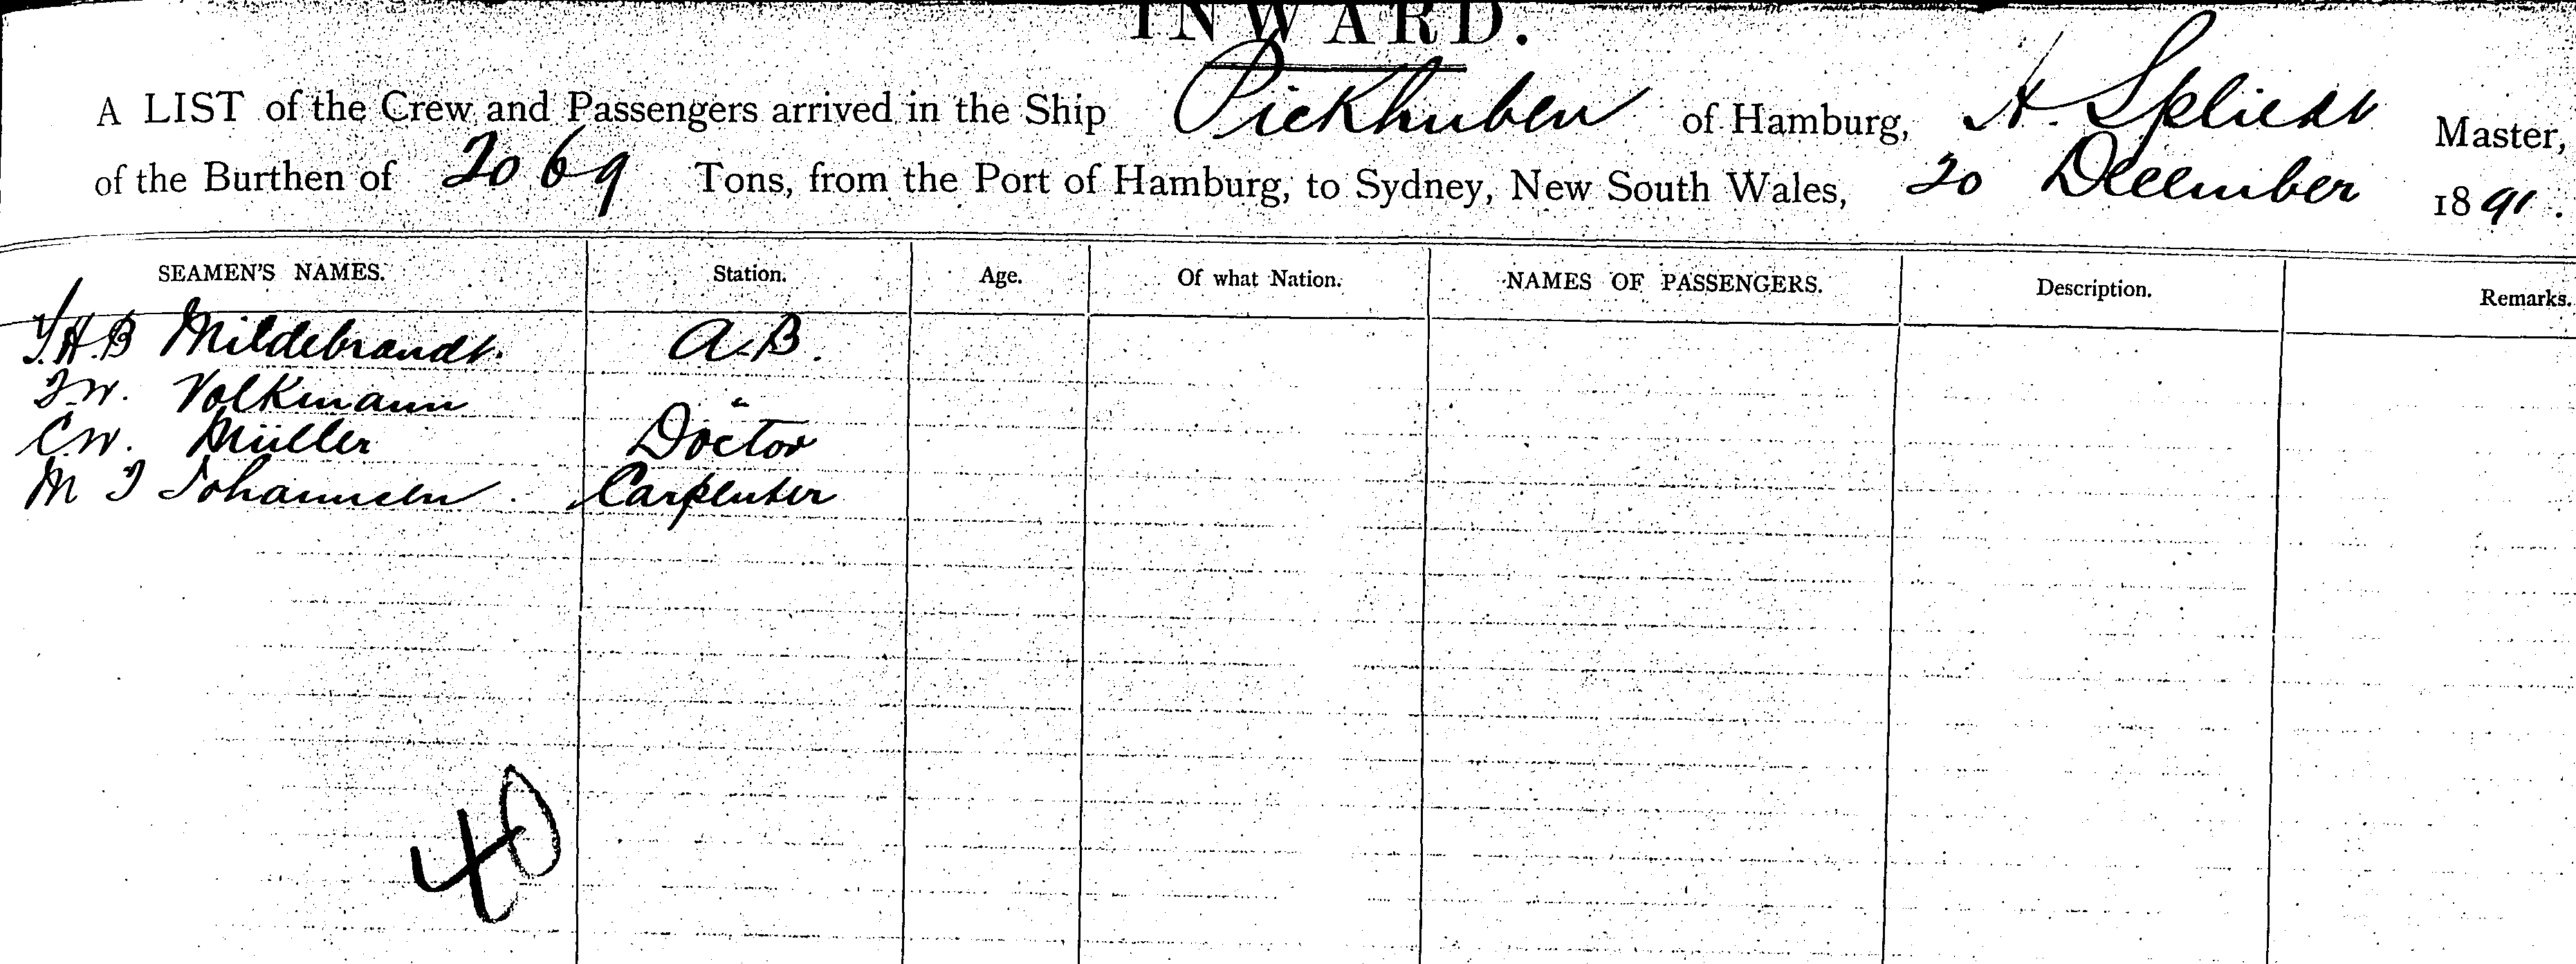 INWARD.
A LIST of the Crew and Passengers arrived in the Ship Pickhuben of Hamburg, A. Spliedt Master,
of the Burthen of 2069 Tons, from the Port of Hamburg, to Sydney, New South Wales, 20 December 1891.
SEAMEN'S NAMES. Station. Age. Of what Nation. NAMES OF PASSENGERS. Description. Remarks.
J.H.B Mildebrandt. A.B.
F.W. Volkmann "
C.W. Müller Doctor
M J Johannsen Carpenter
40